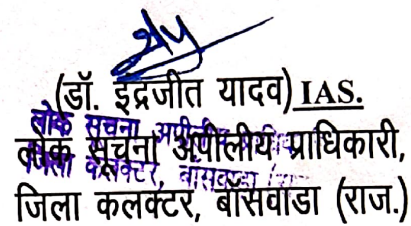 (डॉ. इंद्रजीत यादव) IAS.
लोक सूचना अपीलीय प्राधिकारी,
जिला कलक्टर, बॉसवाडा (राज.)
लोक सूचना अपीलीय
जिला कलक्टर, बांसवाडा